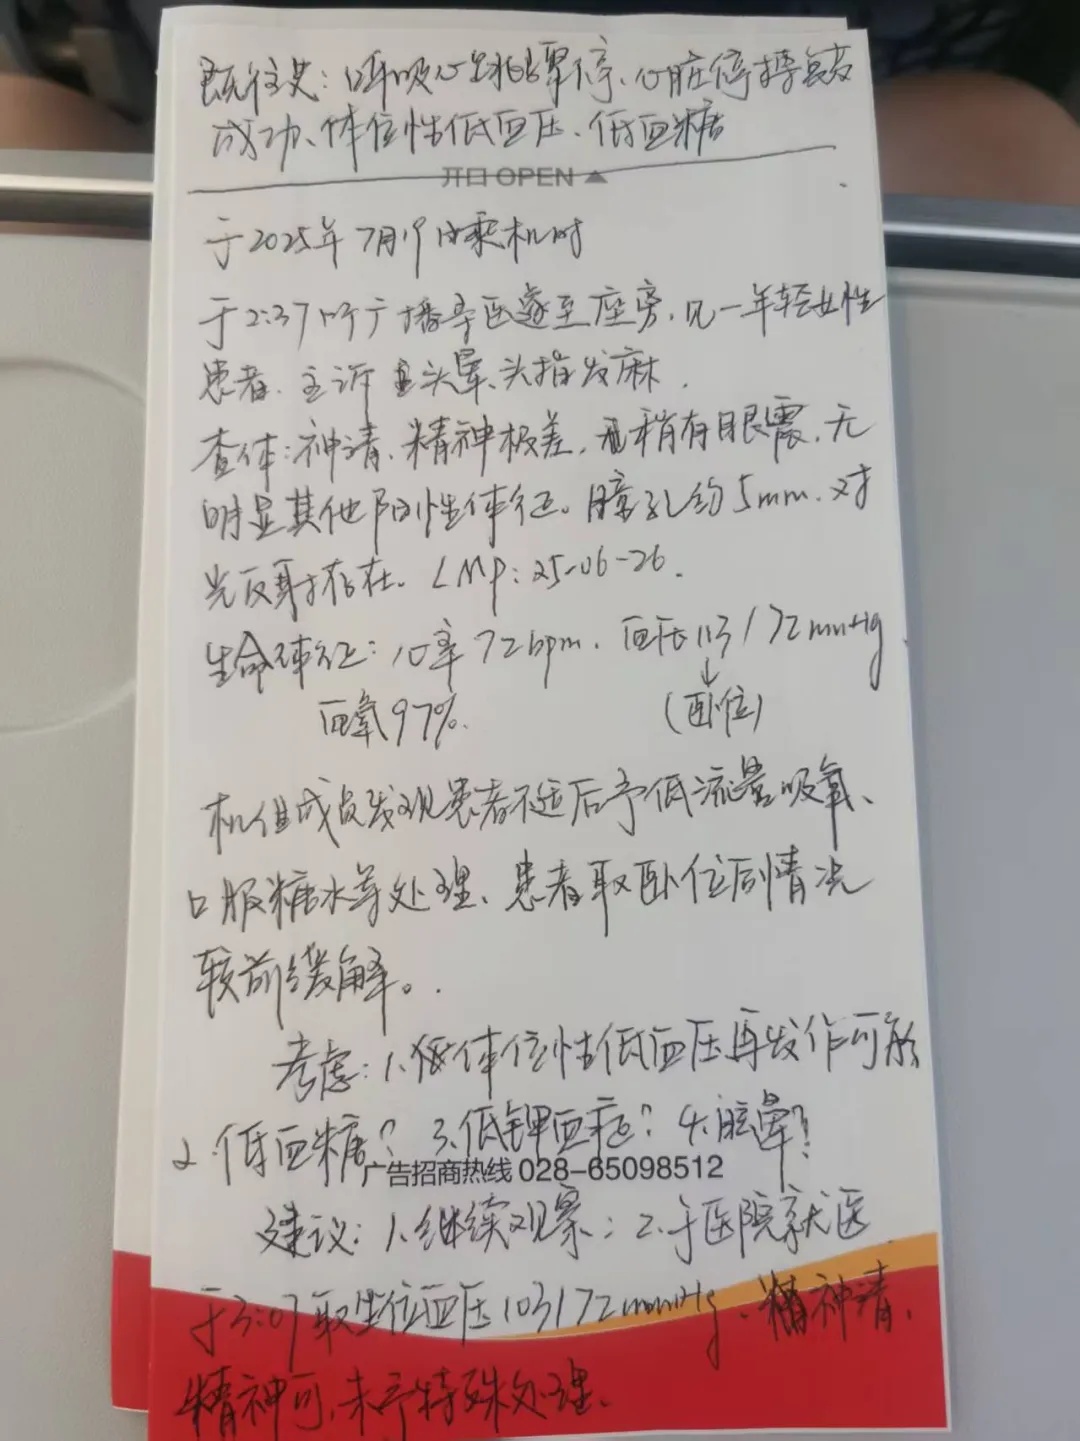 既往史：呼吸心跳骤停、心脏停搏复苏
成功、体位性低血压、低血糖
开口 OPEN
于2025年7月19日乘机时
于2:37听广播寻医遂至座旁，见一年轻女性
患者，主诉头晕、头指发麻．
查体：神清、精神极差，稍有眼震，无
明显其他阳性体征。瞳孔约5mm．对
光反射存在．LMP：25-06-26．
生命体征：心率72bpm．血压113/72mmHg
血氧97%．
(卧位)
机组成员发现患者不适后予低流量吸氧、
口服糖水等处理、患者取卧位后情况
较前缓解。
考虑：1.体位性低血压再发作可能
2.低血糖？3.低钾血症？4.眩晕？
广告招商热线 028-65098512
建议：1.继续观察；2.于医院就医
于3:07取坐位血压103/72mmHg、精神清，
精神可，未予特殊处理．